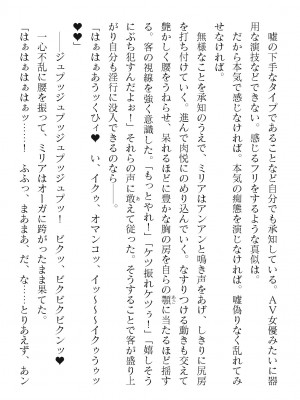 嘘の下手なタイプであることなど自分でも承知している。AV女優みたいに器
用な演技などできない。感じるフリをするような真似は。
だから本気で感じなければ。本気の痴態を演じなければ。嘘偽りなく乱れてみ
せなければ。
無様なことを承知のうえで、ミリアはアンアンと鳴き声をあげ、しきりに尻房
を打ち付けていく。進んで肉悦にのめり込んでいく。なまつける動きも交えて
艶かしく腰をうねらせ、呆れるほどに豊かな胸の房を自らの顎に当たるほど揺す
る。客の視線を強く意識した。「もっとやれ！」「ケツ振れケツぅ！」「嬉しそう
にぶち犯すんだよぉ！」それらの声に敢えて従った。そうすることで客が盛り上
がり自分も淫行に没入できるのなら――。
「はぁはぁあうッくひィ♥　い、イクゥ、オマンコッ、イッ～～イクゥうゥッ
♥♥」
――ジュプッジュプッジュプッ！　ビクッ、ビクビクビクンッ♥
一心不乱に腰を振って、ミリアはオーガに跨がったまま果てた。
「はぁはぁはぁはぁッ……！　ふふっ、まあまあ、だ、な……とりあえず、あン